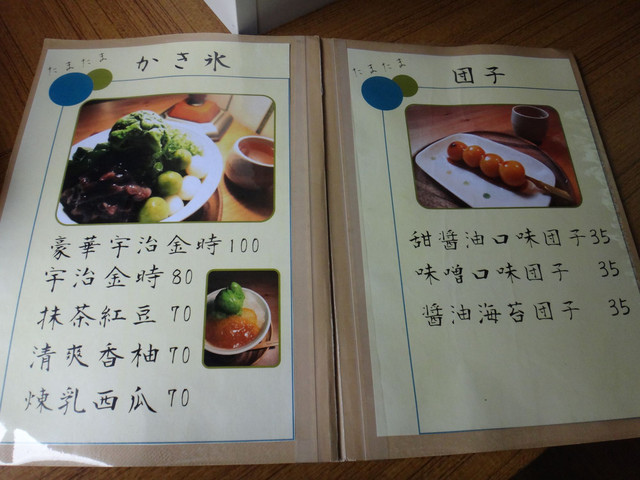 たまたま
かき氷
豪華宇治金時100
宇治金時80
抹茶紅豆70
清爽香柚70
煉乳西瓜70
たまたま
団子
甜醬油口味団子35
味噌口味団子 35
醬油海苔団子 35